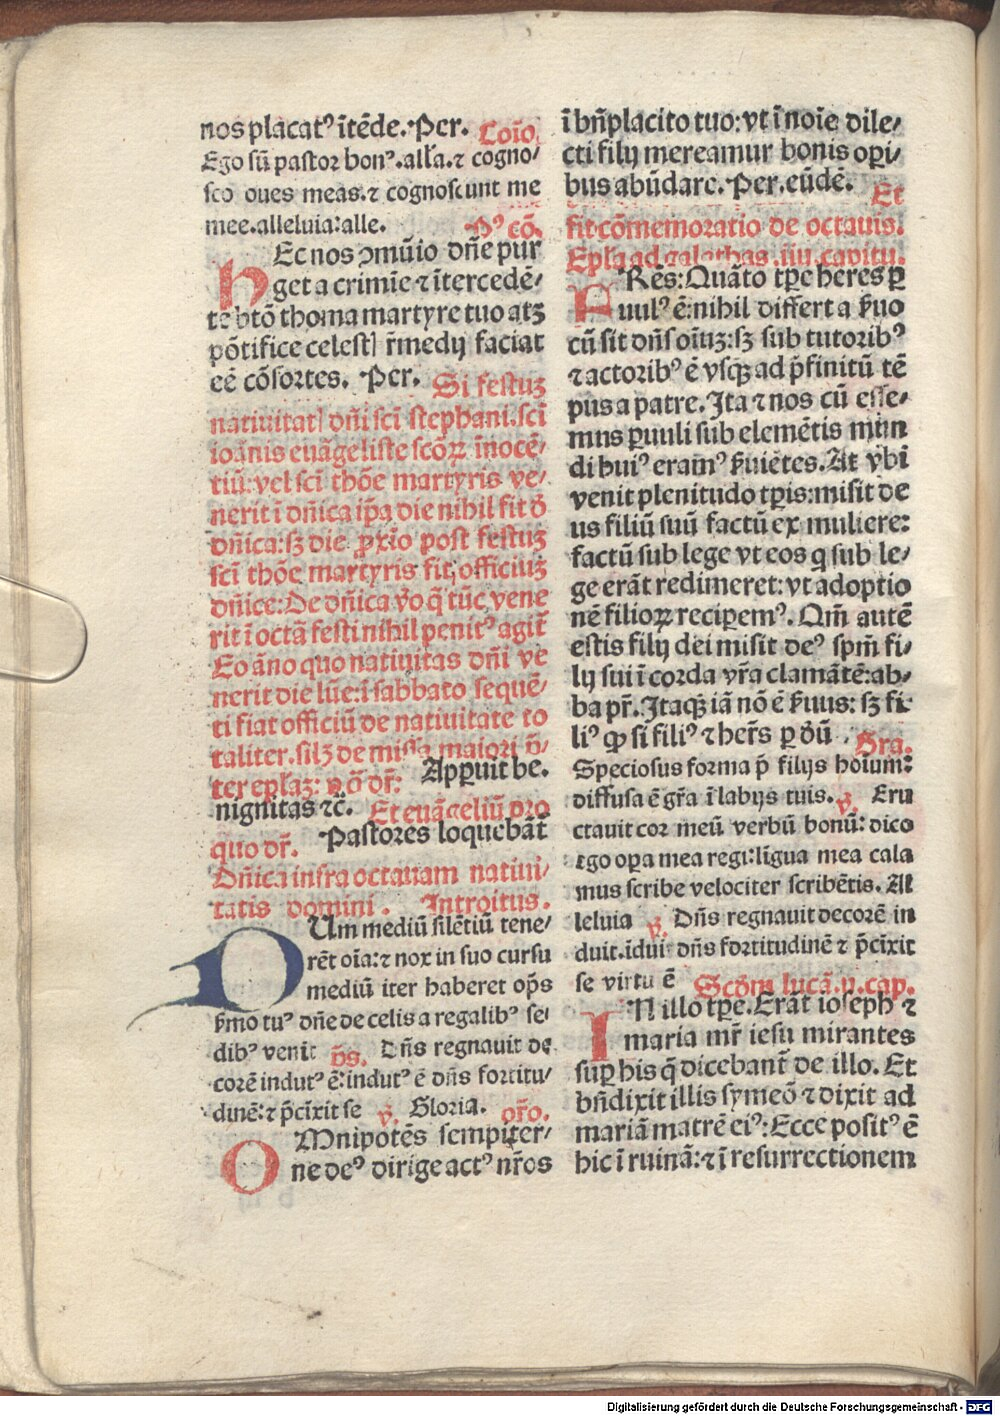 nos placatꝰ ītēde. Per. Coīo.
Ego sū pastor bonꝰ. alľa. ⁊ cogno/
sco oues meas. ⁊ cognoscunt me
mee. alleluia: alle. Pꝰ cō.
Hec nos ɔmūio dn̄e pur
get a crimīe ⁊ ītercedē/
te btō thoma martyre tuo atqꝫ
pōtifice celestꝭ r̄medij faciat
eē cōsortes. Per. Si festuꝫ
natiuitatꝭ dn̄i scī stephani. scī
ioānis euāgeliste scōꝝ īnocē/
tiū: vel scī thōe martyris ve/
nerit ī dn̄ica ip̄a die nihil fit ď
dn̄ica: sꝫ die ꝓxīo post festuꝫ
scī thōe martyris fit officiuꝫ
dn̄ice: De dn̄ica v̄o q̄ tūc vene
rit ī octā festi nihil penitꝰ agit̄
Eo āno quo natiuitas dn̄i ve
nerit die lūe: ī sabbato sequē/
ti fiat officiū de natiuitate to
taliter. silꝫ de missa maiori p̄/
ter ep̄laꝫ: ꝓ q̄ dr̄: Apparuit be.
nignitas ⁊c̄. Et euāgeliū pro
quo dr̄. Pastores loquebāt̄
Dn̄ica infra octauam natiui/
tatis domini. Introitus.
DUm mediū silētiū tene/
rēt oīa: ⁊ nox in suo cursu
mediū iter haberet op̄s
ẜmo tuꝰ dn̄e de celis a regalibꝰ se/
dibꝰ venit p̄s. Dn̄s regnauit de
corē indutꝰ ē: indutꝰ ē dn̄s fortitu/
dinē: ⁊ p̄cīxit se ℣. Gloria. or̄o.
OMnipotēs sempiter/
ne deꝰ dirige actꝰ nr̄os
ī bn̄placito tuo: vt ī noīe dile/
cti filij mereamur bonis oꝑi/
bus abūdare. Per. eūdē. Et
fit cōmemoratio de octauis.
Ep̄la ad galathas. iiij. capitu.
FRēs: Quāto tꝑe heres ꝑ
uulꝰ ē: nihil differt a ẜuo
cū sit dn̄s oīuꝫ: sꝫ sub tutoribꝰ
⁊ actoribꝰ ē vsqꝫ ad p̄finitū tē
pus a patre. Ita ⁊ nos cū esse/
mus ꝑuuli sub elemētis mun
di huiꝰ eramꝰ ẜuiētes. At vbi
venit plenitudo tꝑis: misit de
us filiū suū factū ex muliere:
factū sub lege vt eos q̄ sub le/
ge erāt redimeret: vt adoptio
nē filioꝝ recipemꝰ. Qm̄ autē
estis filij dei misit deꝰ spm̄ fi/
lij sui ī corda vr̄a clamātē: ab/
ba pr̄. Itaqꝫ iā nō ē ẜuus: sꝫ fi
liꝰ ꝙ si filiꝰ ⁊ her̄s ꝑ deū. Gra.
Speciosus forma p̄ filijs hoīum:
diffusa ē gr̄a ī labijs tuis. ℣. Eru
ctauit cor meū verbū bonū: dico
ego oꝑa mea regi: līgua mea cala
mus scribe velociter scribētis. Al
leluia ℣. Dn̄s regnauit decorē in
duit. īdui dn̄s fortitudinē ⁊ p̄cīxit
se virtu ē Scd̄m lucā. ij. cap.
IN illo tꝑe. Erāt ioseph ⁊
maria mr̄ iesu mirantes
suꝑ his q̄ dicebant̄ de illo. Et
bn̄dixit illis symeō ⁊ dixit ad
mariā matrē eiꝰ: Ecce positꝰ ē
hic ī ruinā: ⁊ ī resurrectionem
Digitalisierung gefördert durch die Deutsche Forschungsgemeinschaft - DFG